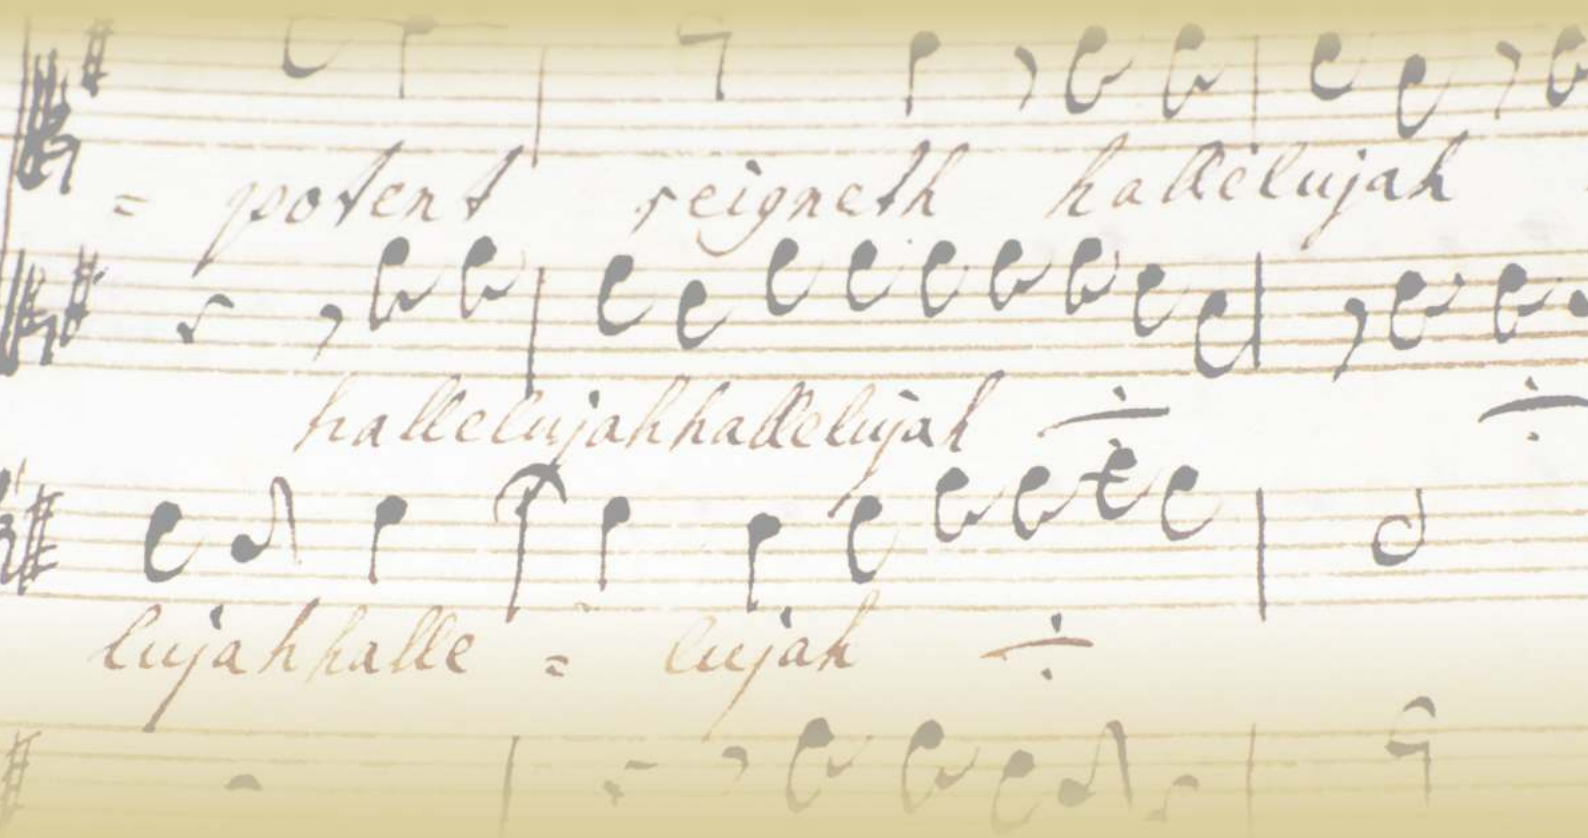 = potent reigneth hallelujah
hallelujahhallelujah ÷ ÷
lujahhalle = lujah ÷